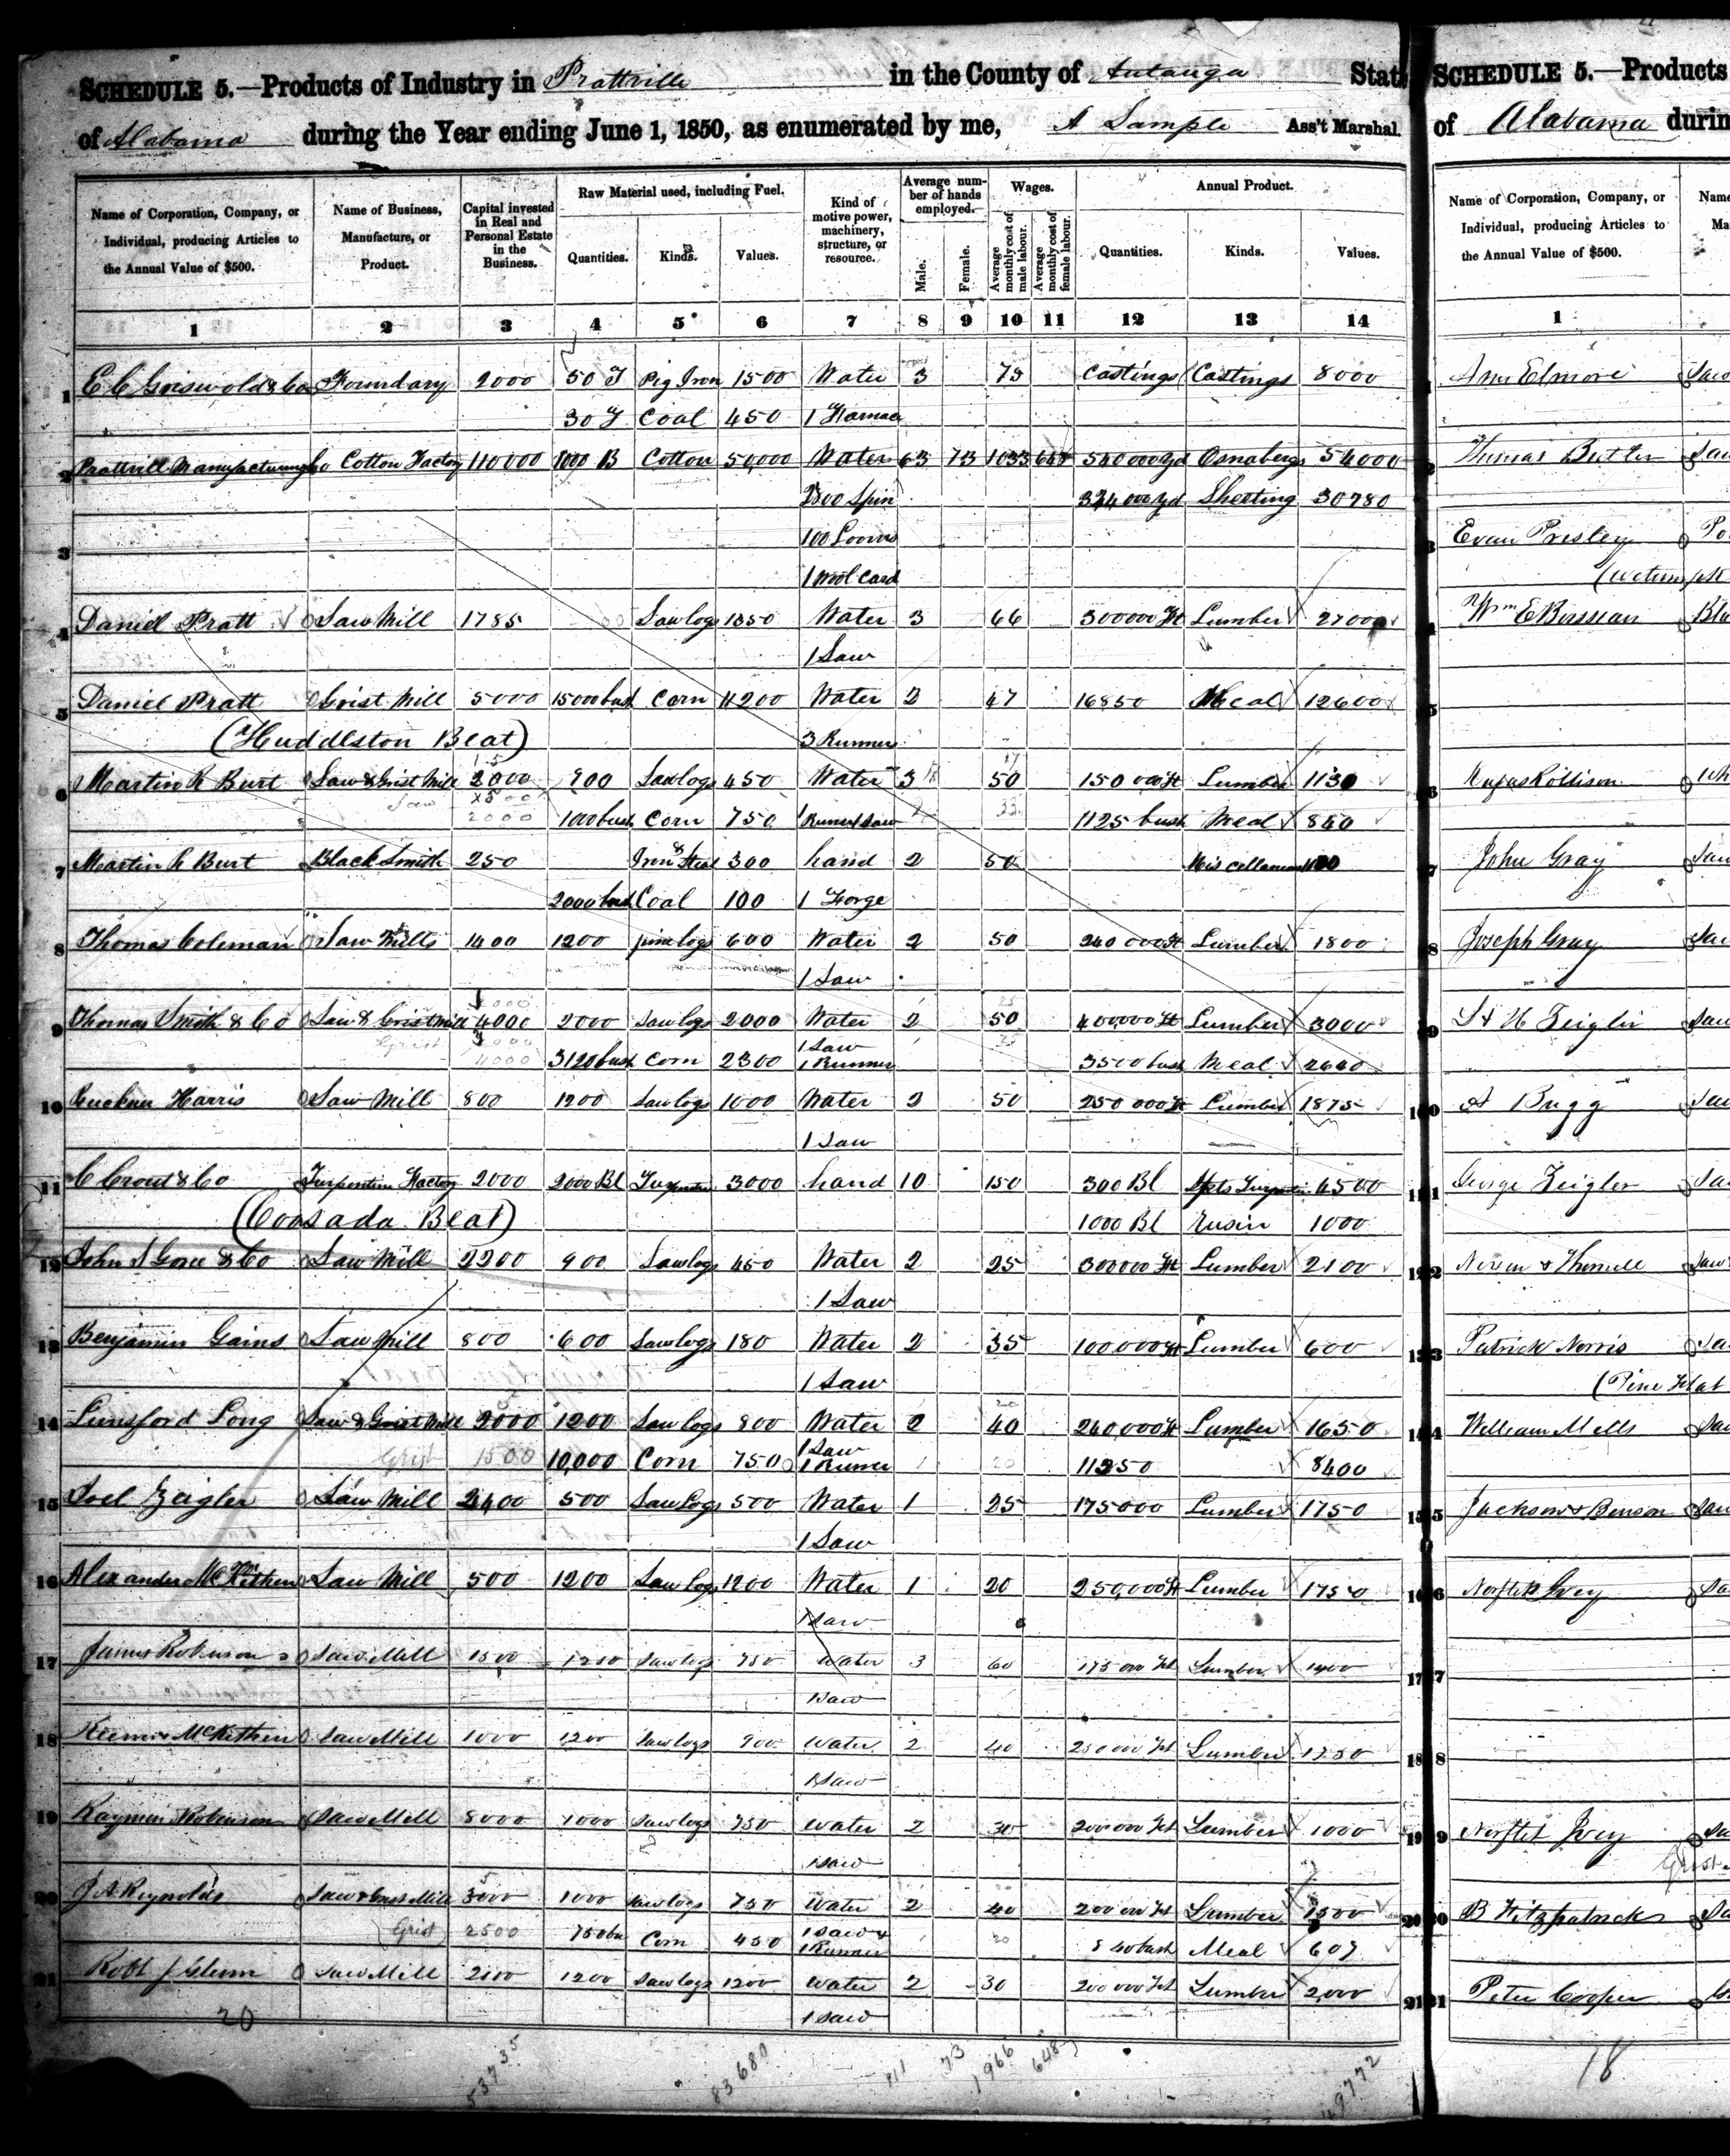 SCHEDULE 5.—Products of Industry in Prattville in the County of Autauga State
of Alabama during the Year ending June 1, 1850, as enumerated by me, A Sample Ass't Marshal.
Name of Corporation, Company, or Individual, producing Articles to the Annual Value of $500.
Name of Business, Manufacture, or Product.
Capital invested in Real and Personal Estate in the Business.
Raw Material used, including Fuel.
Quantities. Kinds. Values.
Kind of motive power, machinery, structure, or resource.
Average number of hands employed.
Male. Female.
Wages.
Average monthly cost of male labour. Average monthly cost of female labour.
Annual Product.
Quantities. Kinds. Values.
1 2 3 4 5 6 7 8 9 10 11 12 13 14
1 E C Griswold & Co Foundary 2000 50 T Pig Iron 1500 Water 3 75 Castings Castings 8000
30 T Coal 450 1 Furnace
2 Prattvill Manufacturing Co Cotton Factory 110000 1000 B Cotton 50,000 Water 63 73 1033 648 540000 yd Osnabergs 54000
2800 Spin 324000 yd Sheeting 30780
3 100 Looms
1 Wool Card
4 Daniel Pratt Saw Mill 1785 Saw logs 1350 Water 3 66 300000 ft Lumber 2700
1 Saw
5 Daniel Pratt Grist Mill 5000 15000 bush Corn 11200 Water 2 47 16850 Meal 12600
(Huddleston Beat) 3 Runners
6 Martin R Burt Saw & Grist Mill 2000 900 Saw logs 450 Water 3 50 150 000 ft Lumber 1130
1000 bush Corn 750 1 Runner 1 Saw 1125 bush Meal 840
7 Martin R Burt Black Smith 250 Iron & Steel 300 hand 2 50
2000 bush Coal 100 1 Forge
8 Thomas Coleman Saw Mills 1400 1200 pine logs 600 Water 2 50 240 000 ft Lumber 1800
1 Saw
9 Thomas Smith & Co Saw & Grist Mill 4000 2000 Saw logs 2000 Water 2 50 400000 ft Lumber 3000
Grist 4000 3120 bush Corn 2300 1 Saw 1 Runner 3500 bush Meal 2640
10 Harris Saw Mill 800 1200 Saw logs 1000 Water 2 50 250 000 ft Lumber 1875
1 Saw
11 C Crout & Co Turpentine Factory 2000 2000 Bl Turpentine 3000 hand 10 150 300 Bl Spts Turpentine 4500
(Coosada Beat) 1000 Bl Rosin 1000
12 John S Gore & Co Saw Mill 2200 900 Saw logs 450 Water 2 25 300000 ft Lumber 2100
1 Saw
13 Benjamin Gains Saw Mill 800 600 Saw logs 180 Water 2 35 100,000 ft Lumber 600
1 Saw
14 Lunsford Long Saw & Grist Mill 2000 1200 Saw logs 800 Water 2 40 240,000 ft Lumber 1650
Grist 1500 10,000 Corn 7500 1 Saw 1 Runner 1 20 11250 8400
15 Joel Zeigler Saw Mill 2400 500 Saw Logs 500 Water 1 25 175000 Lumber 1750
1 Saw
16 Alexander McKethen Saw Mill 500 1200 Saw logs 1200 Water 1 20 250,000 ft Lumber 1750
1 Saw
17 James Robinson Saw Mill 1500 1200 Saw logs 750 Water 3 60 175 000 ft Lumber 1400
1 Saw
18 McKethen Saw Mill 1000 1200 Saw logs 900 Water 2 40 250 000 ft Lumber 1750
1 Saw
19 Robinson Saw Mill 8000 1000 Saw logs 750 Water 2 30 200 000 ft Lumber 1000
1 Saw
20 J A Reynolds Saw & Grist Mill 3000 1000 Saw logs 750 Water 2 40 200 000 ft Lumber 1500
Grist 2500 750 bu Corn 450 1 Saw & 1 Runner 1 20 840 bush Meal 607
21 Robt J Glenn Saw Mill 2100 1200 Saw logs 1200 Water 2 30 200 000 ft Lumber 2,000
20 1 Saw
53735 83680 111 73 1966 648 49772
SCHEDULE 5.—Products
of Alabama durin
Name of Corporation, Company, or Individual, producing Articles to the Annual Value of $500.
1
Ann Elmore
Thomas Butler
3 Evan Presley
Wm E Bosseau
6 Rufus Rollison
7 John Gray
8 Joseph Gray
9 Zeigler
10 Bugg
11 George Zeigler
12
13 Patrick Norris
(Pine Flat
14 William Mells
15 Jackson & Benson
16 Ivey
17
18
19 Ivey
Grist
20 B Fitzpatrick
21 Peter Cooper
18